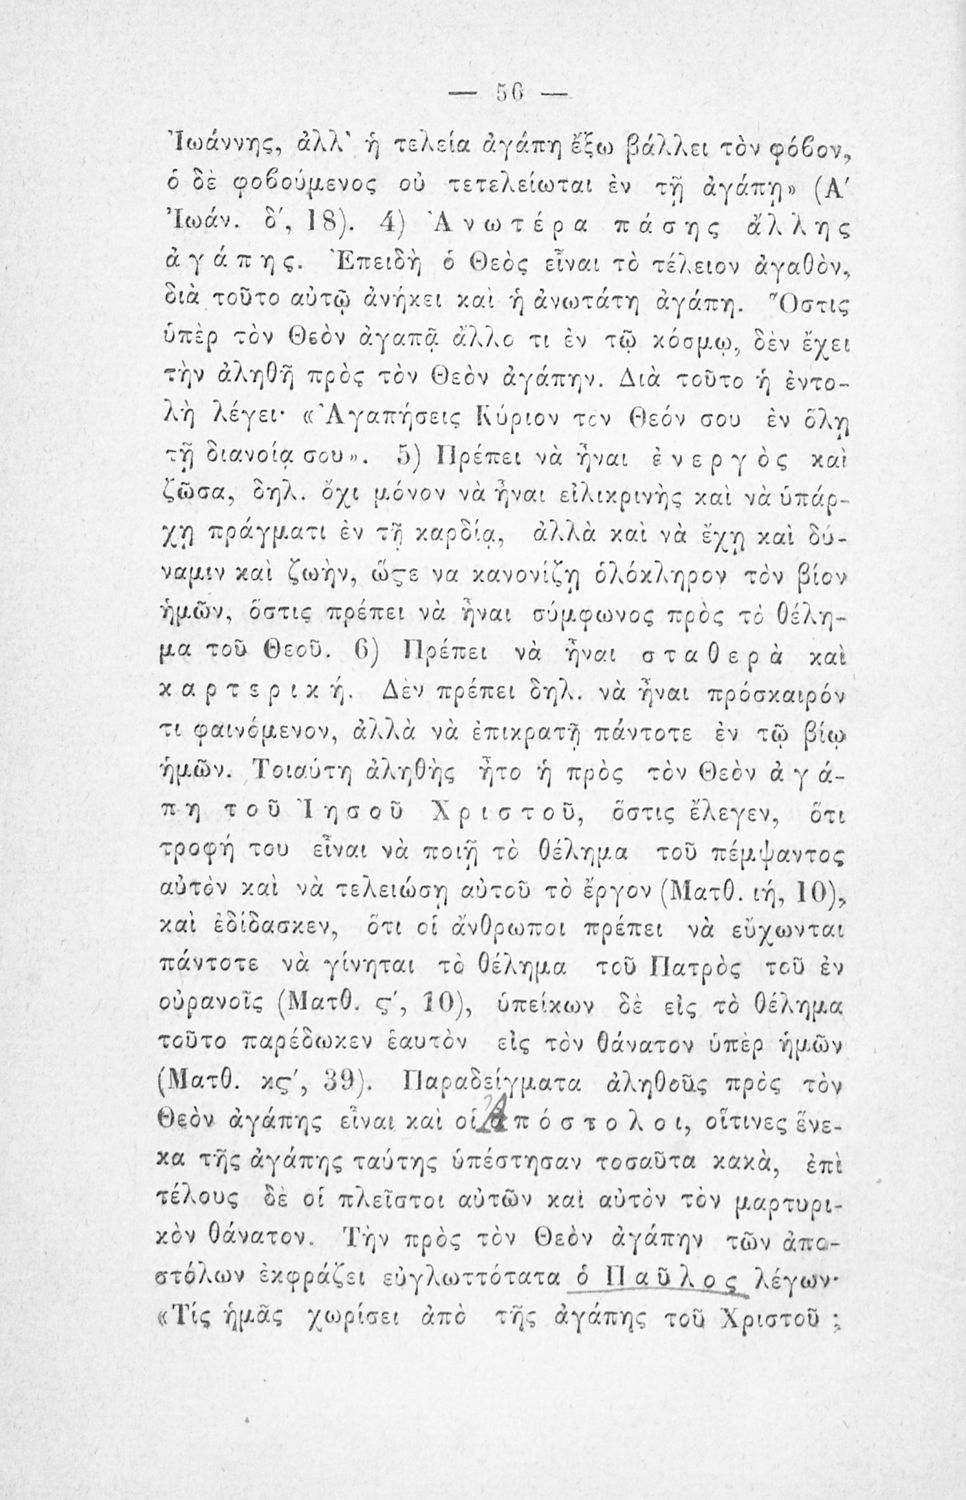 — 56 —
Ἰωάννης, ἀλλ' ἡ τελεία ἀγάπη ἔξω βάλλει τὸν φόβον,
ὁ δὲ φοβούμενος οὐ τετελείωται ἐν τῇ ἀγάπῃ» (Α'
Ἰωάν. δ', 18). 4) Ἀνωτέρα πάσης ἄλλης
ἀγάπης. Ἐπειδὴ ὁ Θεὸς εἶναι τὸ τέλειον ἀγαθὸν,
διὰ τοῦτο αὐτῷ ἀνήκει καὶ ἡ ἀνωτάτη ἀγάπη. Ὅστις
ὑπὲρ τὸν Θεὸν ἀγαπᾷ ἄλλο τι ἐν τῷ κόσμῳ, δὲν ἔχει
τὴν ἀληθῆ πρὸς τὸν Θεὸν ἀγάπην. Διὰ τοῦτο ἡ ἐντο-
λὴ λέγει· «Ἀγαπήσεις Κύριον τὸν Θεόν σου ἐν ὅλῃ
τῇ διανοίᾳ σου». 5) Πρέπει νὰ ἦναι ἐνεργὸς καὶ
ζῶσα, δηλ. ὄχι μόνον νὰ ἦναι εἰλικρινὴς καὶ νὰ ὑπάρ-
χῃ πράγματι ἐν τῇ καρδίᾳ, ἀλλὰ καὶ νὰ ἔχῃ καὶ δύ-
ναμιν καὶ ζωὴν, ὥςε να κανονίζῃ ὁλόκληρον τὸν βίον
ἡμῶν, ὅστις πρέπει νὰ ἦναι σύμφωνος πρὸς τὸ θέλη-
μα τοῦ Θεοῦ. 6) Πρέπει νὰ ἦναι σταθερὰ καὶ
καρτερική. Δὲν πρέπει δηλ. νὰ ἦναι πρόσκαιρόν
τι φαινόμενον, ἀλλὰ νὰ ἐπικρατῇ πάντοτε ἐν τῷ βίῳ
ἡμῶν. Τοιαύτη ἀληθὴς ἦτο ἡ πρὸς τὸν Θεὸν ἀγά-
πη τοῦ Ἰησοῦ Χριστοῦ, ὅστις ἔλεγεν, ὅτι
τροφή του εἶναι νὰ ποιῇ τὸ θέλημα τοῦ πέμψαντος
αὐτὸν καὶ νὰ τελειώσῃ αὐτοῦ τὸ ἔργον (Ματθ. ιή, 10),
καὶ ἐδίδασκεν, ὅτι οἱ ἄνθρωποι πρέπει νὰ εὔχωνται
πάντοτε νὰ γίνηται τὸ θέλημα τοῦ Πατρὸς τοῦ ἐν
οὐρανοῖς (Ματθ. ς', 10), ὑπείκων δὲ εἰς τὸ θέλημα
τοῦτο παρέδωκεν ἑαυτὸν εἰς τὸν θάνατον ὑπὲρ ἡμῶν
(Ματθ. κς', 39). Παραδείγματα ἀληθοῦς πρὸς τὸν
Θεὸν ἀγάπης εἶναι καὶ οἱ Ἀπόστολοι, οἵτινες ἕνε-
κα τῆς ἀγάπης ταύτης ὑπέστησαν τοσαῦτα κακὰ, ἐπὶ
τέλους δὲ οἱ πλεῖστοι αὐτῶν καὶ αὐτὸν τὸν μαρτυρι-
κὸν θάνατον. Τὴν πρὸς τὸν Θεὸν ἀγάπην τῶν ἀπο-
στόλων ἐκφράζει εὐγλωττότατα ὁ Παῦλος λέγων·
«Τίς ἡμᾶς χωρίσει ἀπὸ τῆς ἀγάπης τοῦ Χριστοῦ ;